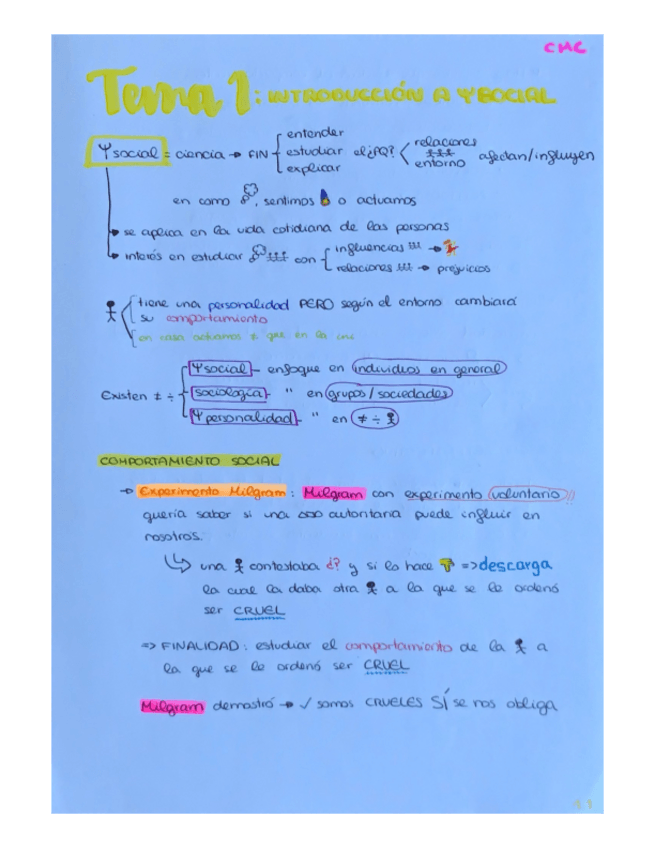 CMC
Tema 1: INTRODUCCIÓN A ΨSOCIAL
entender
Ψsocial = ciencia → FIN estudiar el ¿PQ? relaciones afectan/influyen
explicar entorno
en como , sentimos o actuamos
se aplica en la vida cotidiana de las personas
interés en estudiar con influencias →
relaciones → prejuicios
tiene una personalidad PERO según el entorno cambiará
su comportamiento
en casa actuamos ≠ que en la
Ψsocial - enfoque en individuos en general
Existen ≠ ÷ sociología - " en grupos/sociedades
Ψpersonalidad - " en ≠ ÷
COMPORTAMIENTO SOCIAL
→ Experimento Milgram: Milgram con experimento voluntario
quería saber si una autoritaria puede influir en
nosotros.
una contestaba ¿? y si lo hace => descarga
la cual la daba otra a la que se le ordenó
ser CRUEL
=> FINALIDAD: estudiar el comportamiento de la a
la que se le ordenó ser CRUEL
Milgram demostró → ✓ somos CRUELES SÍ se nos obliga